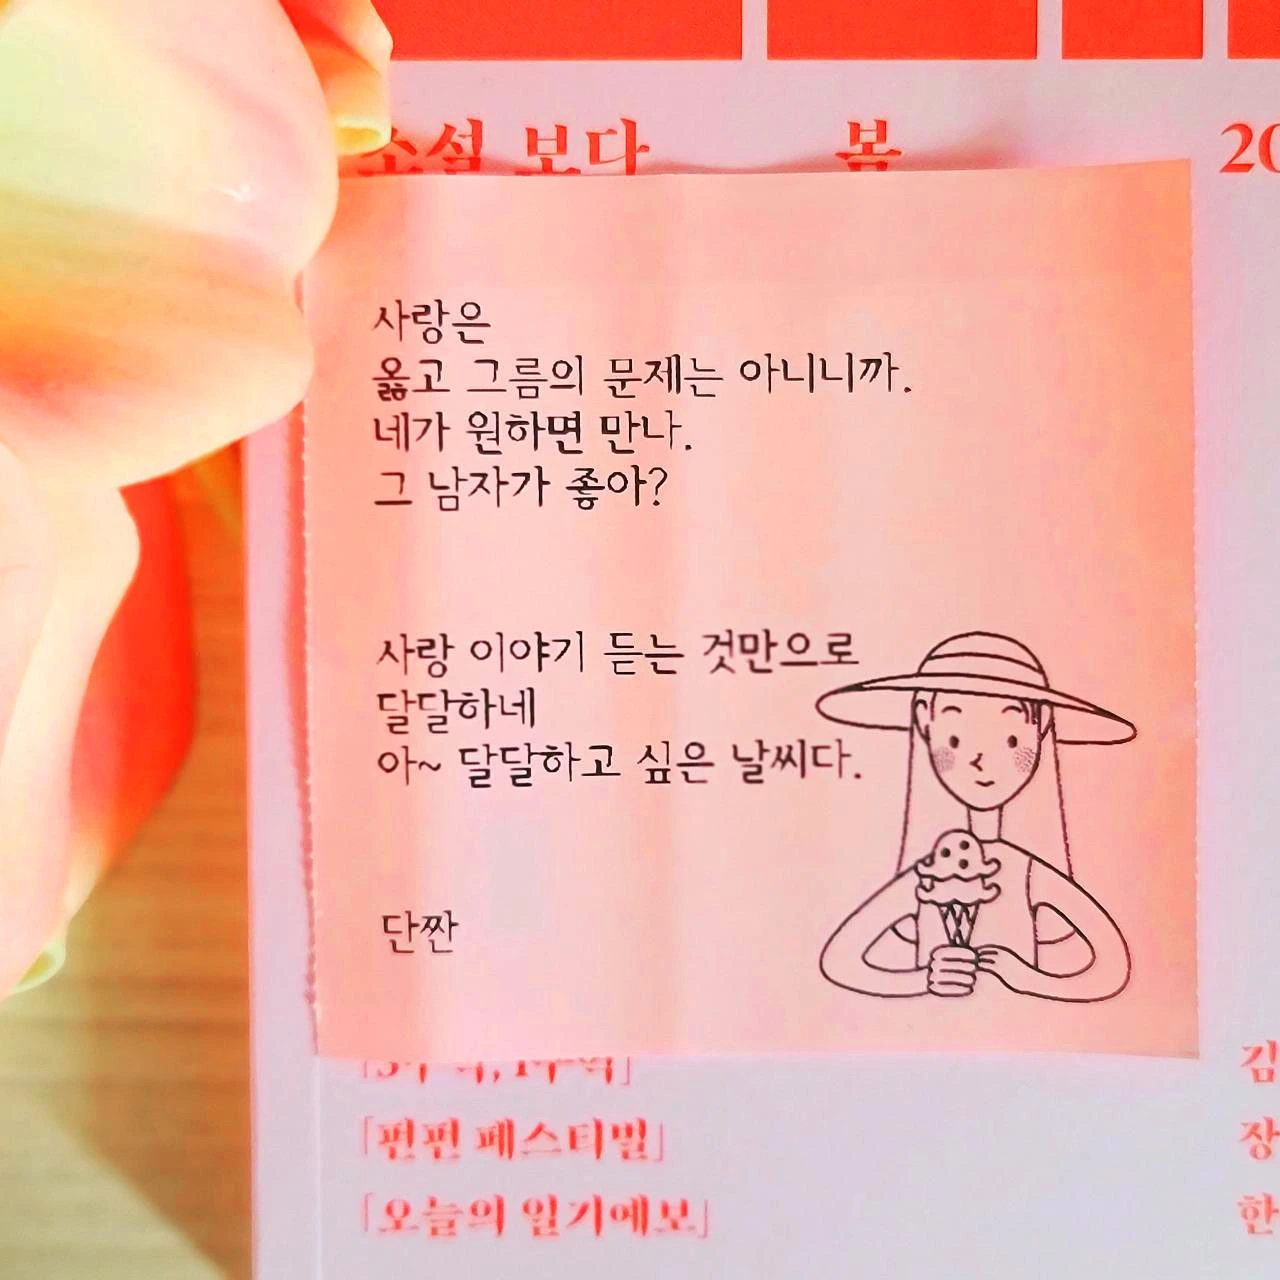 소설 보다 봄 20
사랑은
옳고 그름의 문제는 아니니까.
네가 원하면 만나.
그 남자가 좋아?
사랑 이야기 듣는 것만으로
달달하네
아~ 달달하고 싶은 날씨다.
단짠
김
「펀펀 페스티벌」 장
「오늘의 일기예보」 한